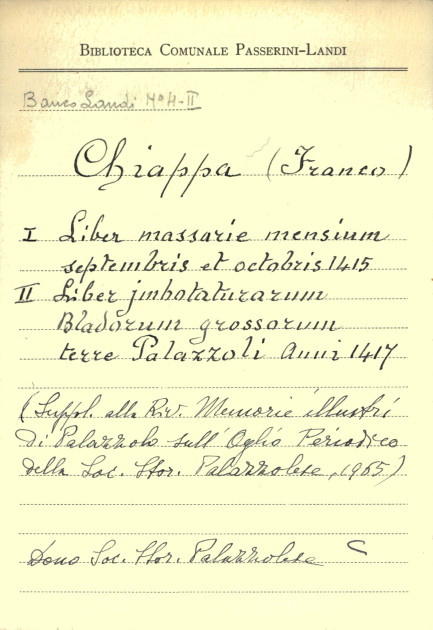 BIBLIOTECA COMUNALE PASSERINI-LANDI
Banco Landi Nº H-II
Chiappa (Franco)
I Liber massarie mensium
septembris et octobris 1415
II Liber jmbotaturarum
Bladorum grossorum
terre Palazzoli Anni 1417
(Suppl. alla Riv. Memorie illustri
di Palazzolo sull'Oglio Periodico
della Soc. Stor. Palazzolese, 1965)
Dono Soc. Stor. Palazzolese